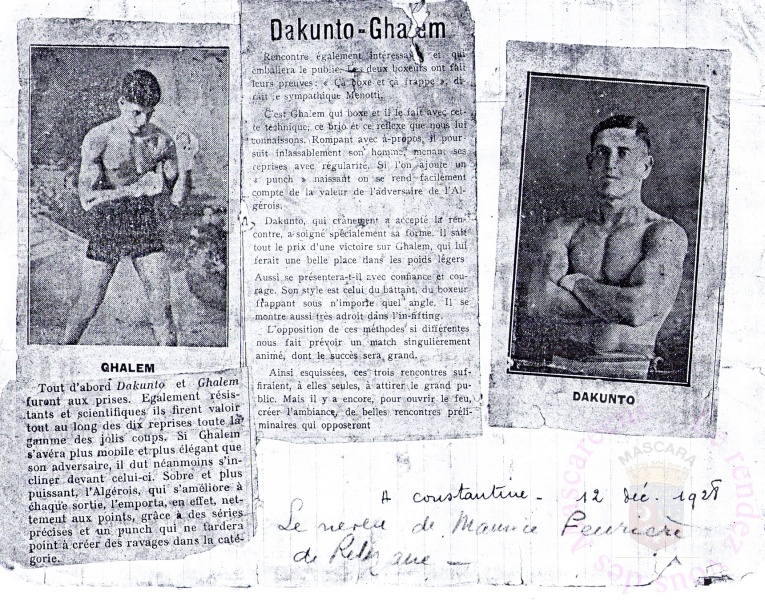 Dakunto-Ghalem
Rencontre également intéressa et qui
emballera le public. Les deux boxeurs ont fait
leurs preuves: « Ça boxe et ça frappe », di
rait le sympathique Menotti.
C'est Ghalem qui boxe et il le fait avec cet-
te technique, ce brio et ce reflexe que nous lui
connaissons. Rompant avec à-propos, il pour-
suit inlassablement son homme, menant ses
reprises avec régularité. Si l'on ajoute un
« punch » naissant on se rend facilement
compte de la valeur de l'adversaire de l'Al-
gérois.
Dakunto, qui crânement a accepté la ren-
contre, a soigné spécialement sa forme. Il sait
tout le prix d'une victoire sur Ghalem, qui lui
ferait une belle place dans les poids légers
Aussi se présentera-t-il avec confiance et cou-
rage. Son style est celui du battant, du boxeur
frappant sous n'importe quel angle. Il se
montre aussi très adroit dans l'in-fitting.
L'opposition de ces méthodes si différentes
nous fait prévoir un match singulièrement
animé, dont le succès sera grand.
Ainsi esquissées, ces trois rencontres suf-
firaient, à elles seules, à attirer le grand pu-
blic. Mais il y a encore, pour ouvrir le feu,
créer l'ambiance, de belles rencontres préli-
minaires qui opposeront
GHALEM
Tout d'abord Dakunto et Ghalem
furent aux prises. Egalement résis-
tants et scientifiques ils firent valoir
tout au long des dix reprises toute la
gamme des jolis coups. Si Ghalem
s'avéra plus mobile et plus élégant que
son adversaire, il dut néanmoins s'in-
cliner devant celui-ci. Sobre et plus
puissant, l'Algérois, qui s'améliore à
chaque sortie, l'emporta, en effet, net-
tement aux points, grâce à des séries
précises et un punch qui ne tardera
point à créer des ravages dans la caté-
gorie.
DAKUNTO
A constantine - 12 déc. 1928
Le neveu de Maurice
de Relizane -
MASCARA